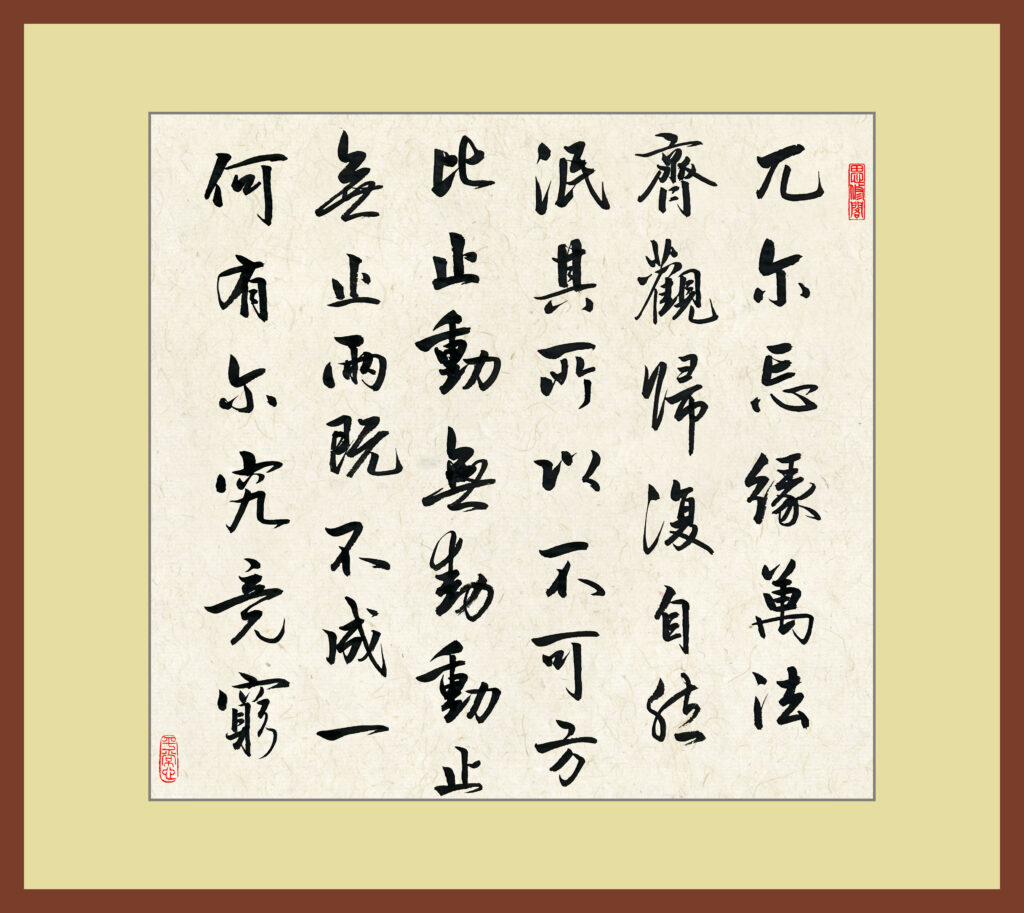 思修閣
兀尔忘緣萬法
齊觀歸復自然
泯其所以不可方
比止動無動動止
無止兩既不成一
何有尔究竟窮
平常心